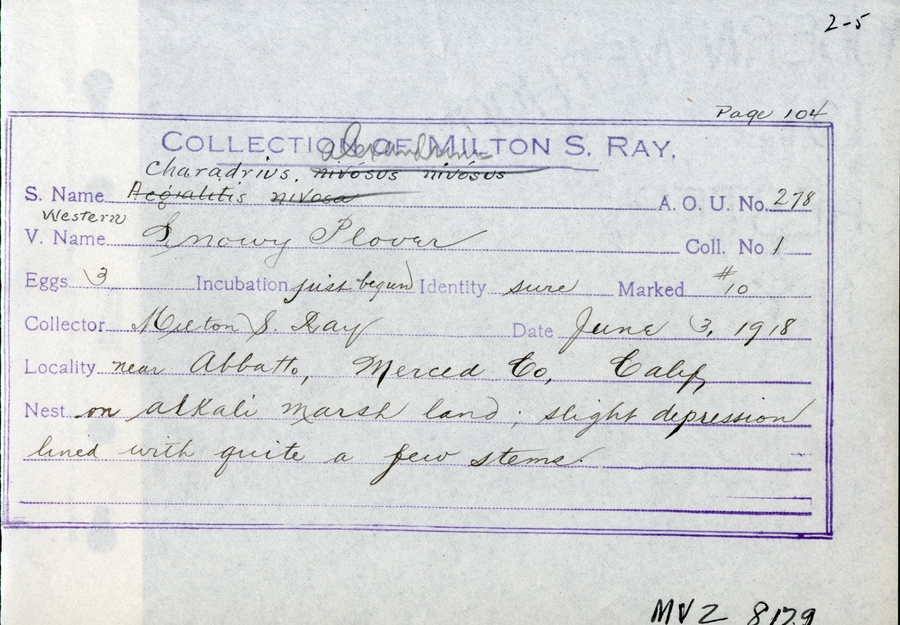 2-5
Page 104
COLLECTION OF MILTON S. RAY.
alexandrinus
Charadrius. nivosus nivosus
S. Name Aegialitis nivosa A. O. U. No. 278
Western
V. Name Snowy Plover Coll. No 1
Eggs 3 Incubation just begun Identity sure Marked #10
Collector Milton S. Ray Date June 3, 1918
Locality near Abbatto, Merced Co, Calif,
Nest on alkali marsh land; slight depression
lined with quite a few stems.
MVZ 8129